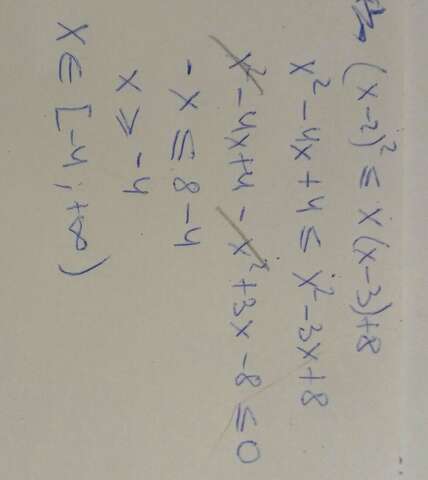 (x-2)² ≤ x(x-3)+8
x²-4x+4 ≤ x²-3x+8
x²-4x+4-x²+3x-8 ≤ 0
-x ≤ 8-4
x ⩾ -4
x ∈ [-4; +∞)